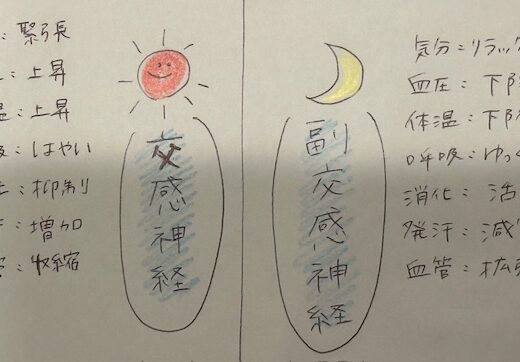 緊張
上昇
上昇
はやい
抑制
増加
収縮
交感神経
副交感神経
気分：リラッ
血圧：下
体温：下
呼吸：ゆっ
消化：活
発汗：減
血管：拡